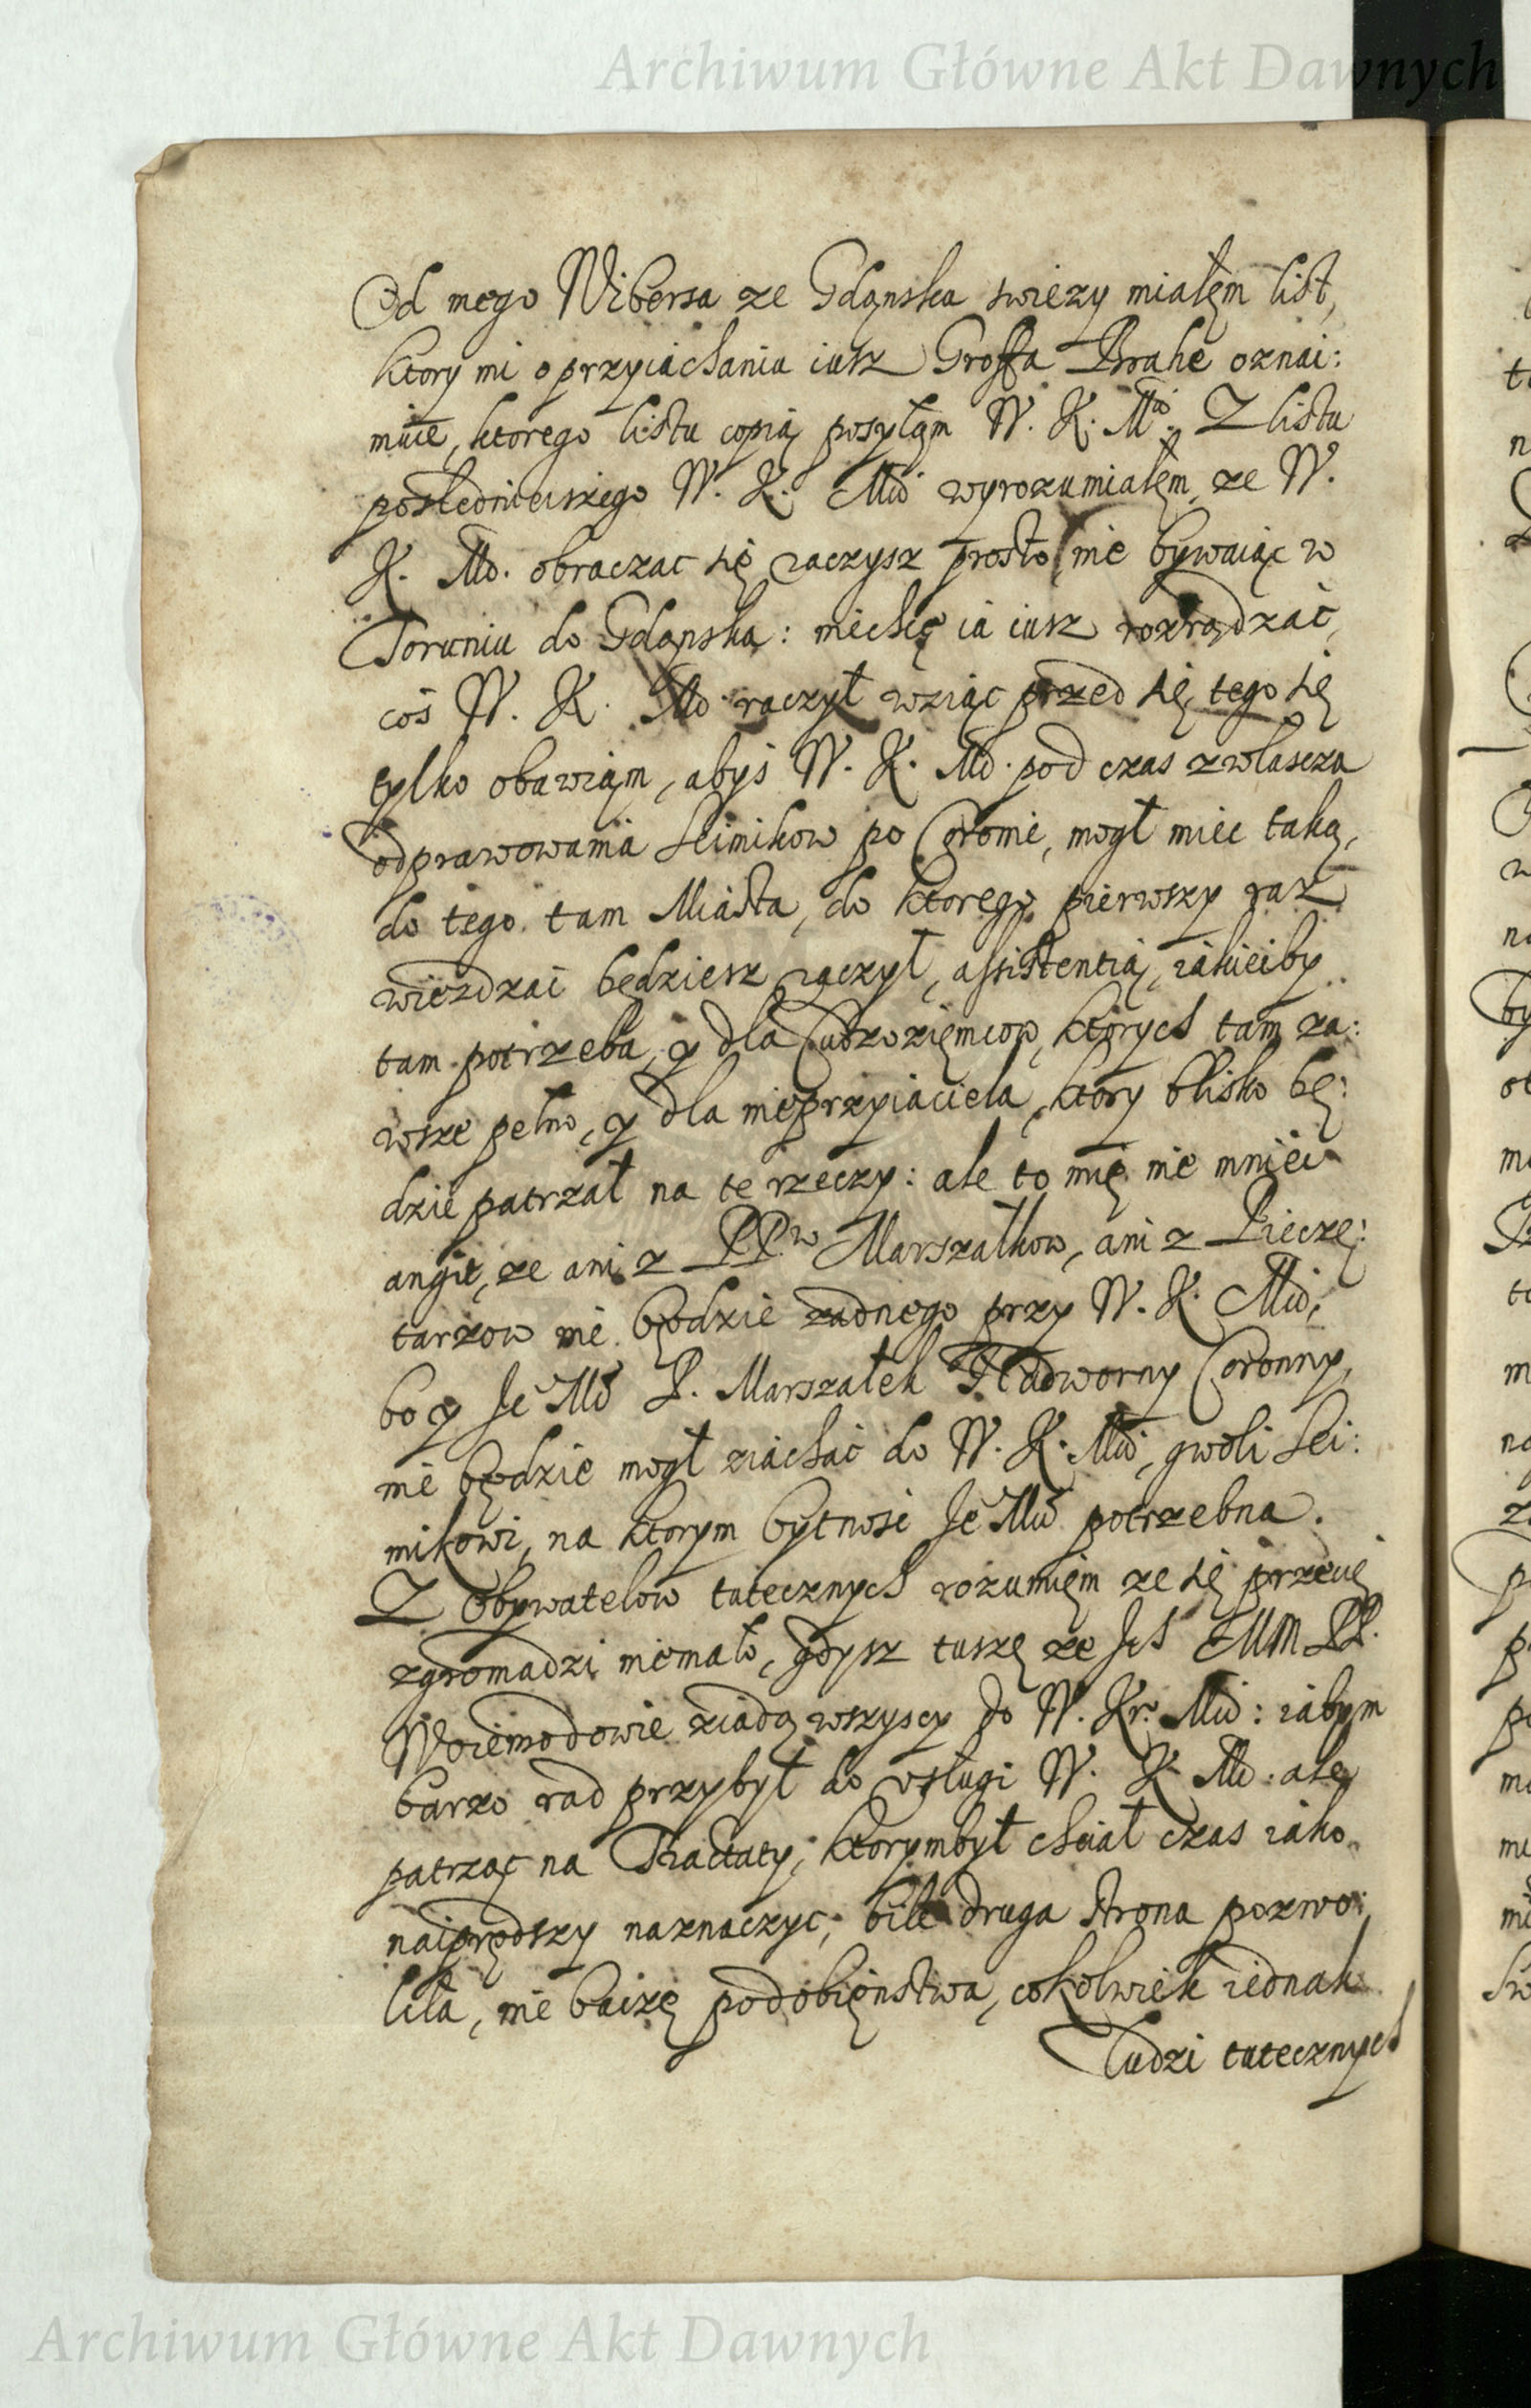 Archiwum Główne Akt Dawnych
Od mego Wibersa ze Gdąnska swiezy miałęm list,
ktory mi o przyiachaniu iusz Groffa Brahe oznai:
muie, ktorego listu copią posyłąm W. K. Mći. Z listu
poslednieiszego W. K. Mći wyrozumiałęm, ze W.
K. Mć. obraczac się raczysz prosto, nie bywaiąc w
Toruniu do Gdąnska: niechcę ia iusz rozrądzać,
coś W. K. Mć. raczył wziąc przed się, tego się
tylko obawiąm, abyś W. K. Mć. pod czas zwłascza
odprawowania Seimikow po Coronie, mogł miec taką,
do tego tam Miasta, do ktorego pierwszy raz
wieżdzać będziesz raczył, assistentią, iakieiby
tam potrzeba, y dla Cudzoziemcow, ktorych tam za:
wsze pełno, y dla nieprzyiaciela, ktory blisko bę:
dzie patrzał na te rzeczy: ale to mię nie mniei
angit, ze ani z PP.w Marszałkow, ani z Pieczę:
tarzow nie będzie zadnego przy W. K. Mći,
bo y Je Mć P. Marszałek Nadworny Coronny,
nie będzie mogł ziachać do W. K. Mći, gwoli Sei:
mikowi, na ktorym bytność Je Mći potrzebna.
Z Obywatelow tutecznych rozumięm ze się przecię
zgromadzi niemało, gdysz tuszę ze Jch MM PP.
Woiewodowie ziadą wszyscy do W. Kr. Mći: iabym
barzo rad przybył do usługi W. K. Mći: ale
patrząc na Tractaty, ktorymbył chciał czas iako
naiprędszy naznaczyc, bile druga strona pozwo:
liła, nie baczę podobięnstwa, cokolwiek iednak
ludzi tutecznych
Archiwum Główne Akt Dawnych